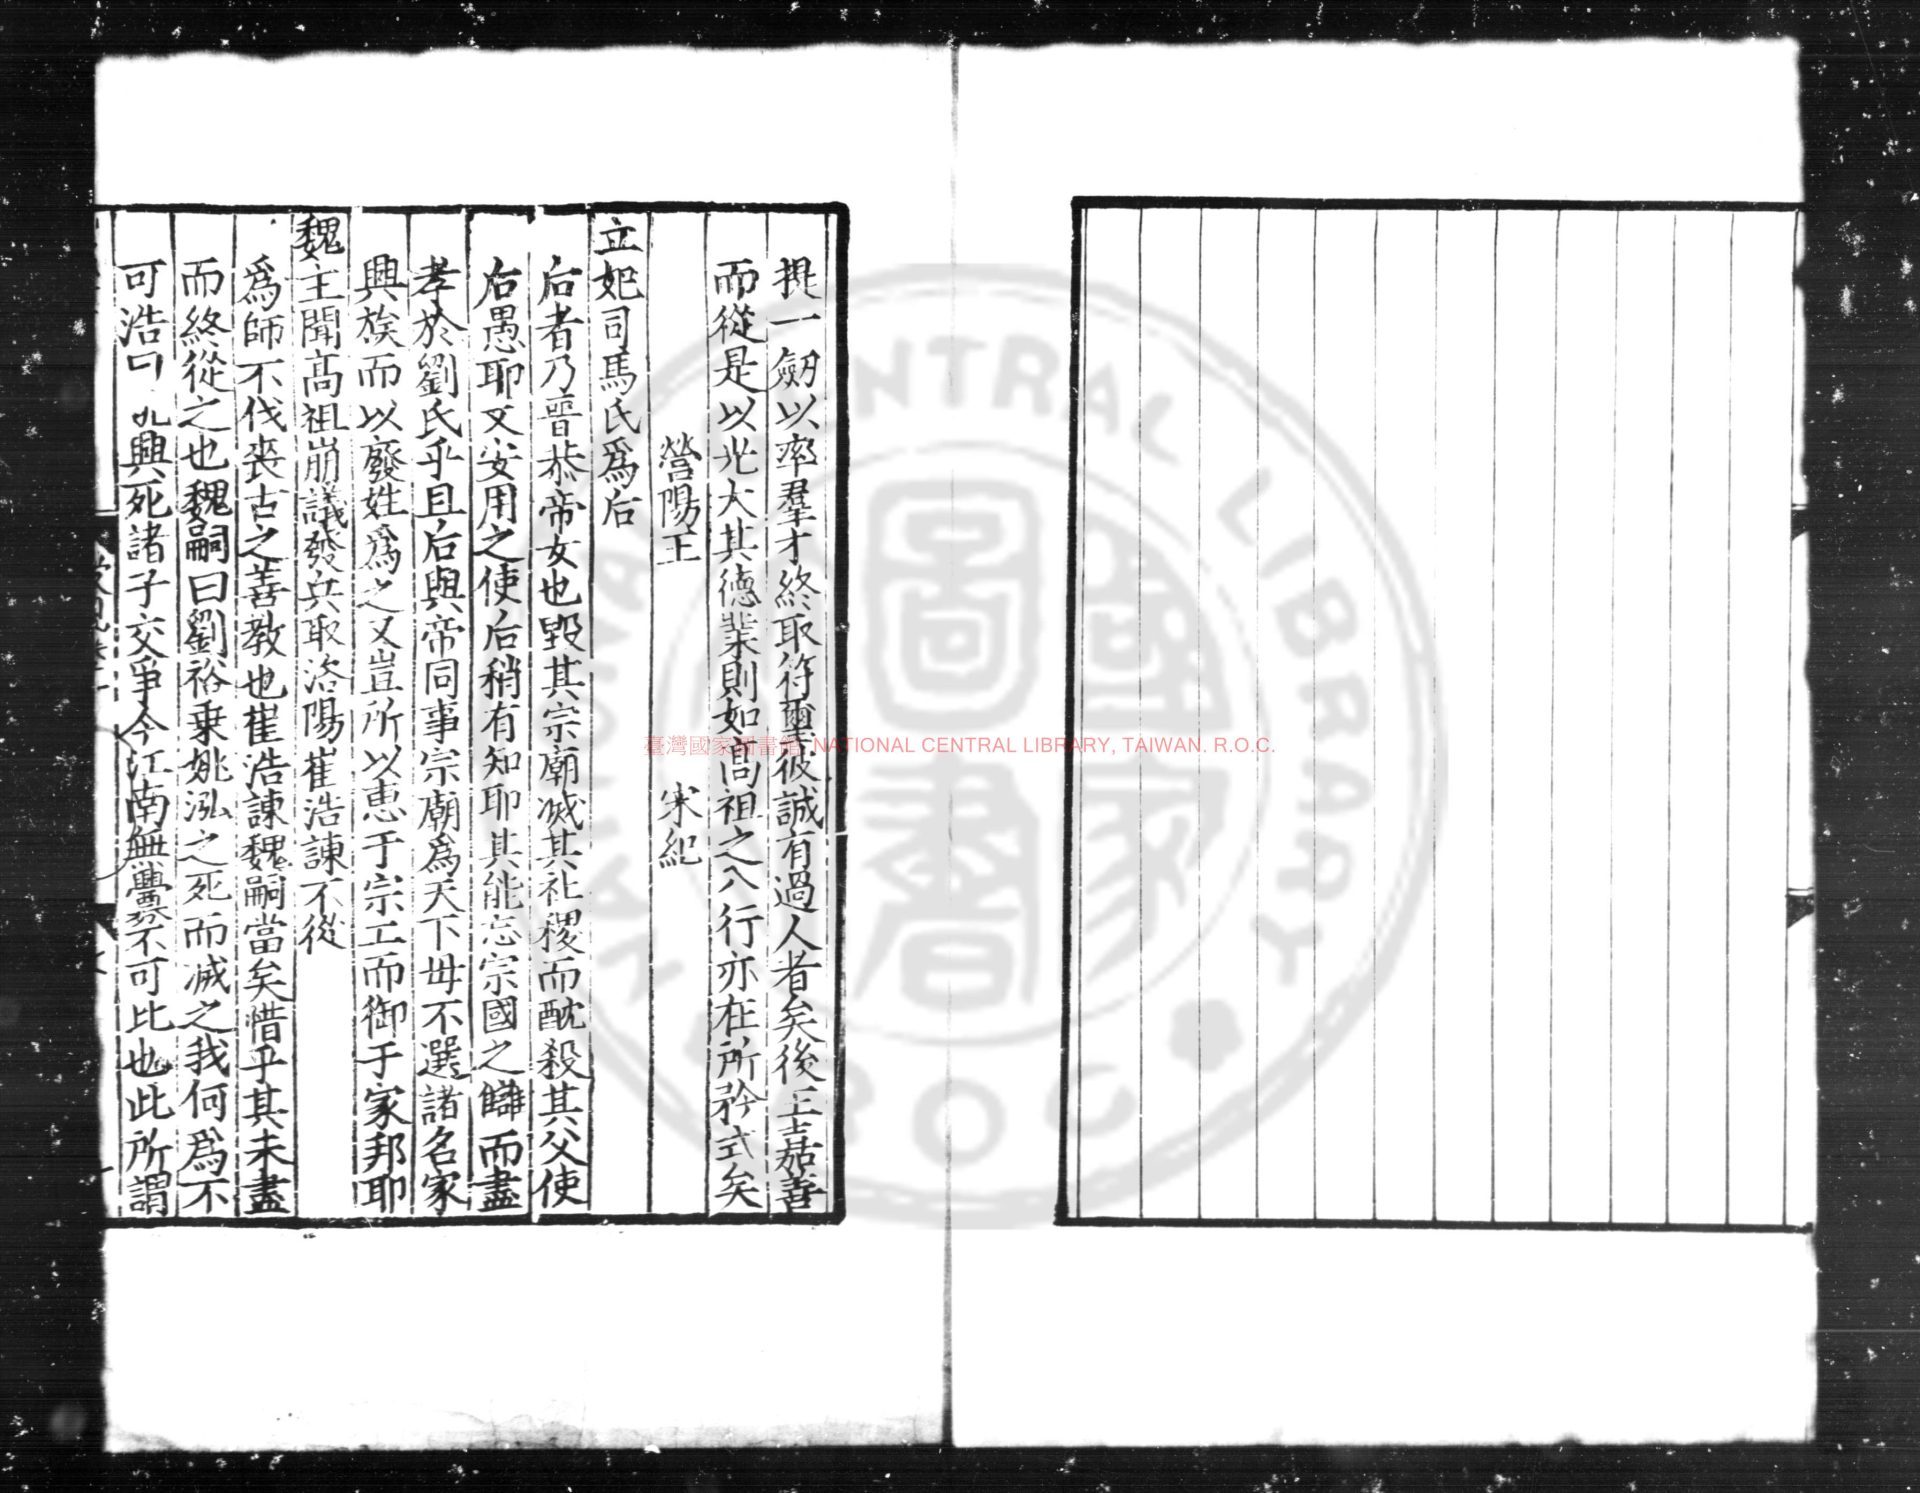 提一劒以率羣才終取符璽彼誠有過人者矣後王嘉善
而從是以光大其德業則如高祖之八行亦在所矜式矣
營陽王 宋紀
立妃司馬氏爲后
后者乃晉恭帝女也毀其宗廟滅其社稷而酖殺其父使
后愚耶又安用之使后稍有知耶其能忘宗國之讎而盡
孝於劉氏乎且后與帝同事宗廟爲天下毋不選諸名家
興族而以廢姓爲之又豈所以惠于宗工而御于家邦耶
魏主聞高祖崩議發兵取洛陽崔浩諫不從
爲師不伐喪古之善教也崔浩諫魏嗣當矣惜乎其未盡
而終從之也魏嗣曰劉裕乗姚泓之死而滅之我何爲不
可浩曰 興死諸子交爭今江南無釁不可比也此所謂
臺灣國家圖書館, NATIONAL CENTRAL LIBRARY, TAIWAN. R.O.C.
NATIONAL CENTRAL LIBRARY
R O C
國家圖書